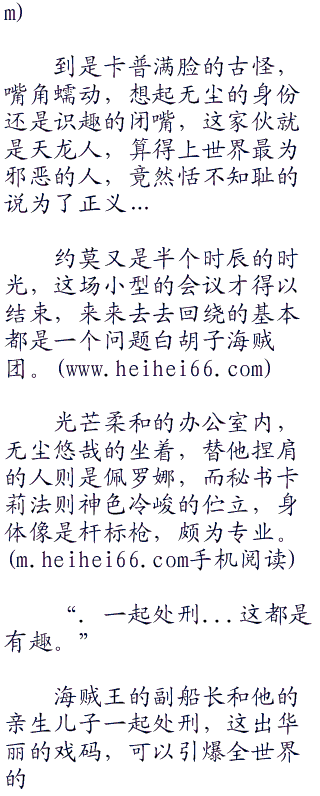 m)
到是卡普满脸的古怪，
嘴角蠕动，想起无尘的身份
还是识趣的闭嘴，这家伙就
是天龙人，算得上世界最为
邪恶的人，竟然恬不知耻的
说为了正义…
约莫又是半个时辰的时
光，这场小型的会议才得以
结束，来来去去回绕的基本
都是一个问题白胡子海贼
团。(www.heihei66.com)
光芒柔和的办公室内，
无尘悠哉的坐着，替他捏肩
的人则是佩罗娜，而秘书卡
莉法则神色冷峻的伫立，身
体像是杆标枪，颇为专业。
(m.heihei66.com手机阅读)
“．一起处刑...这都是
有趣。”
海贼王的副船长和他的
亲生儿子一起处刑，这出华
丽的戏码，可以引爆全世界
的